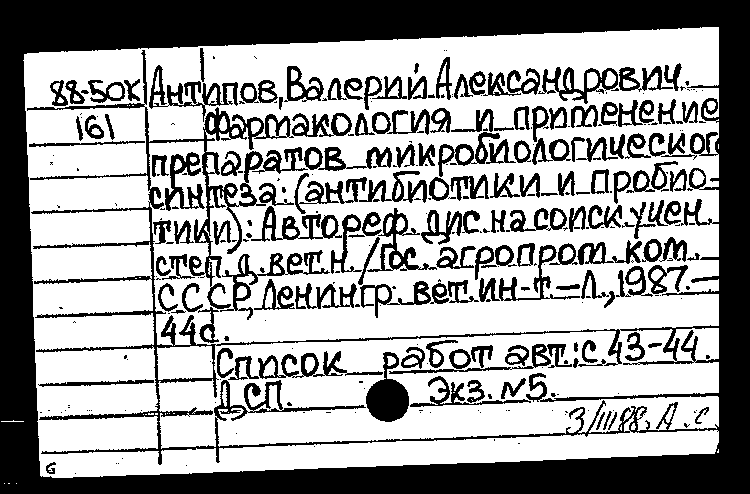 88-50К Антипов, Валерий Александрович.
161 Фармакология и применение
препаратов микробиологического
синтеза: (антибиотики и пробио-
тики): Автореф. дис. на соиск. учен.
степ. д. вет. н. / Гос. агропром. ком.
СССР, Ленингр. вет. ин-т. — Л., 1987. —
44с.
Список работ авт.: с. 43-44.
ДСП. Экз. №5.
3/III 88. А. С
G